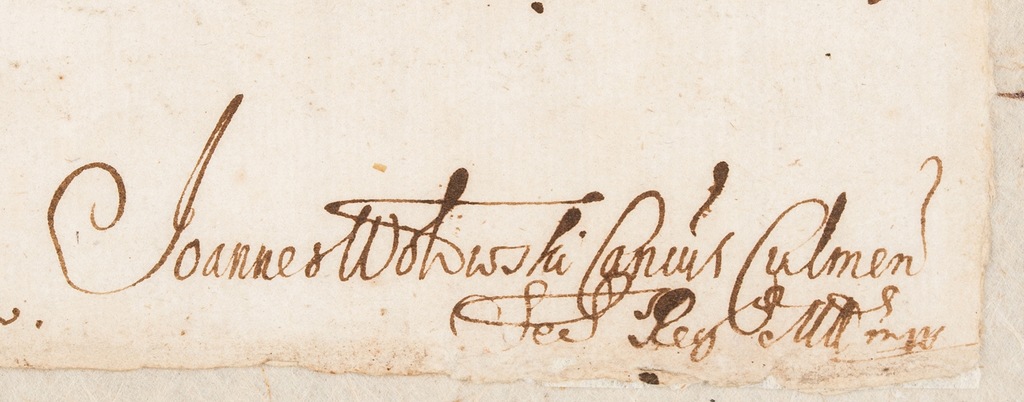 Joannes Wołowski Canius Culmen
Sec Reg Mtt